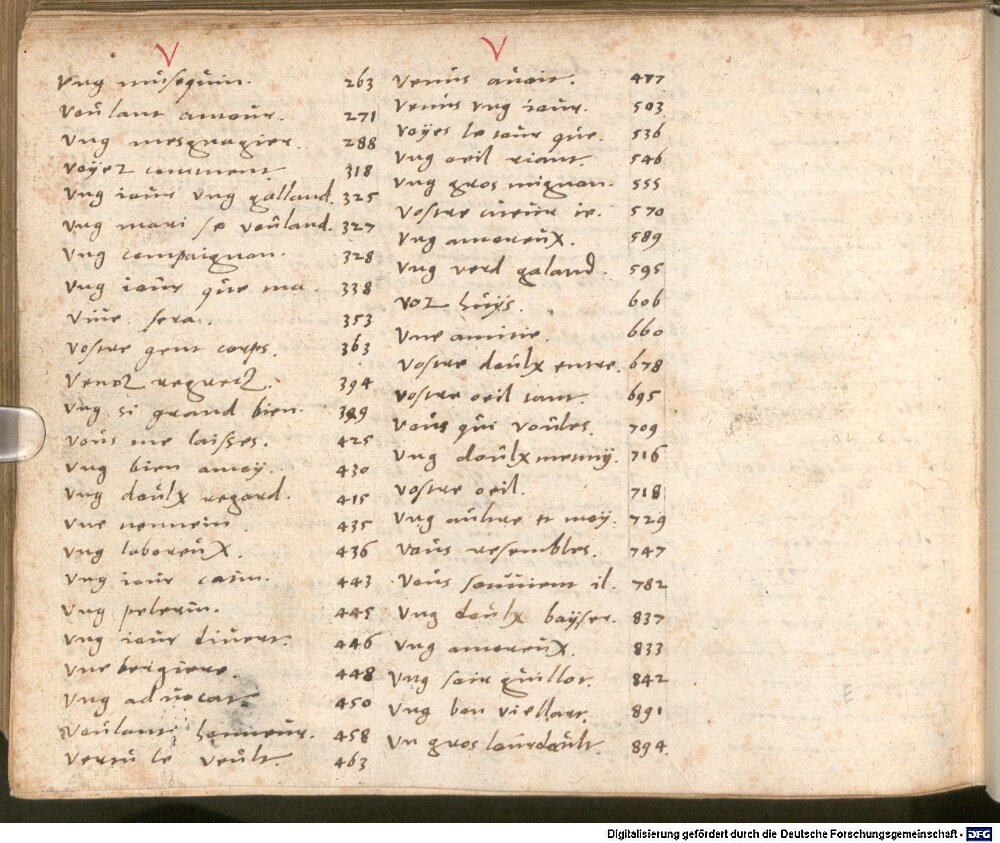 V
Vng musequin. 263
Voulant amour. 271
Vng mesgnagier. 288
voyez comment 318
Vng iour Vng galland. 325
Vng mari se vouland. 327
Vng compaignon. 328
Vng iour que ma. 338
Viue sera. 353
Vostre gent corps. 363
Venez regretz. 394
Vng si grand bien. 399
Vous me laisses. 425
Vng bien amoy. 430
Vng doulx regard. 415
Vne nennein 435
Vng laboreux. 436
Vng iour caim. 443
Vng pelerin. 445
Vng iour diuert. 446
Vne bergiere. 448
Vng aduocat. 450
Voulant honneur. 458
Vertu le veult. 463
V
Venus auoit. 477
Venus vng iour. 503
Voyes le tour que. 536
Vng oeil riant. 546
Vng gros mignon. 555
Vostre cueur ie. 570
Vng amoreux. 589
Vng verd galand. 595
Voz huys. 606
Vne amitie. 660
Vostre doulx entre. 678
Vostre oeil tant. 695
Vous qui voules. 709
Vng doulx nenny. 716
Vostre oeil. 718
Vng aultre et moy. 729
Vous resembles. 747
Vous souuient il. 782
Vng doulx bayser. 837
Vng amoreux. 833
Vng soir guillot 842
Vng bon viellart. 891
Vn gros lourdault. 894
Digitalisierung gefördert durch die Deutsche Forschungsgemeinschaft - DFG